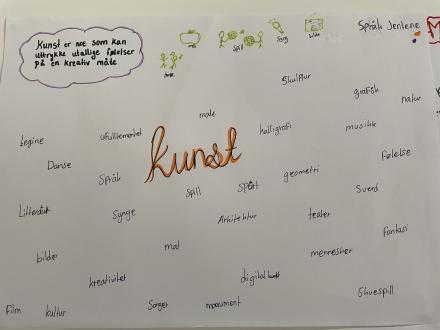 Kunst er noe som kan
uttrykke utallige følelser
på en kreativ måte
mat
Spill
Sang
bilde
dans
Språk Jentene
Skulptur
grafisk
natur
male
kalligrafi
musikk
tegne
ufullkomenhet
Følelse
Danse
kunst
Språk
geometri
spill
sport
Sverd
Litteratur
Synge
Arkitektur
teater
fantasi
bilder
mat
mennesker
kreativitet
digital kunst
Skuespill
Film
kultur
Sanger
monument